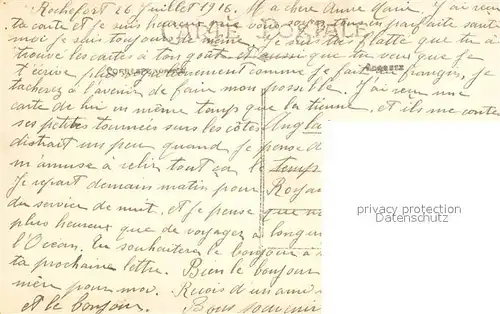 Rochefort 26 Juillet 1916. Ma chère Anne Marie, J'ai reçu
ta carte et je suis heureux que vous soyez tous en parfaite santé
moi je suis toujours de même, je suis très flatté que tu ai
CARTE POSTALE
trouvé les cartes à ton goût et aussi que tu veux que je
CORRESPONDANCE
ADRESSE
t'écrive plus comme je fais en français, je
tacherez à l'avenir de faire mon possible. J'ai reçu une
carte de lui en même temps que la tienne et il me conte
ses petites tournées sur les côtes Angla
distrait un peu quand je pense
m'amuse à relire tout ça le temps
Je repart demain matin pour Roya
du service de nuit, et je pense que
plus heureux que de voyager à longu
l'Océan. tu souhaiteras le bonjour à
ta prochaine lettre. Bien le bonjour
mère pour moi. Reçois d'un ami
et le bonjour. Bons souvenirs
privacy protection
Datenschutz